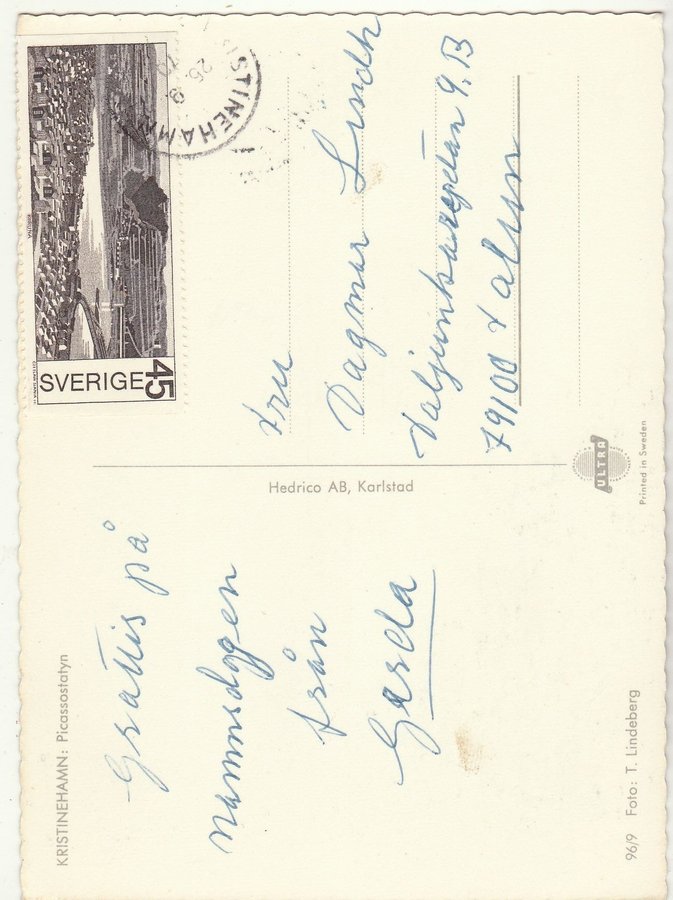 KRISTINEHAMN: Picassostatyn
Grattis på
namnsdagen
från
Gerda
96/9 Foto: T. Lindeberg
Hedrico AB, Karlstad
ULTRA
Printed in Sweden
SVERIGE 45
STINEHAMN
Fru
Dagmar Lindh
9.B
79100 Falun